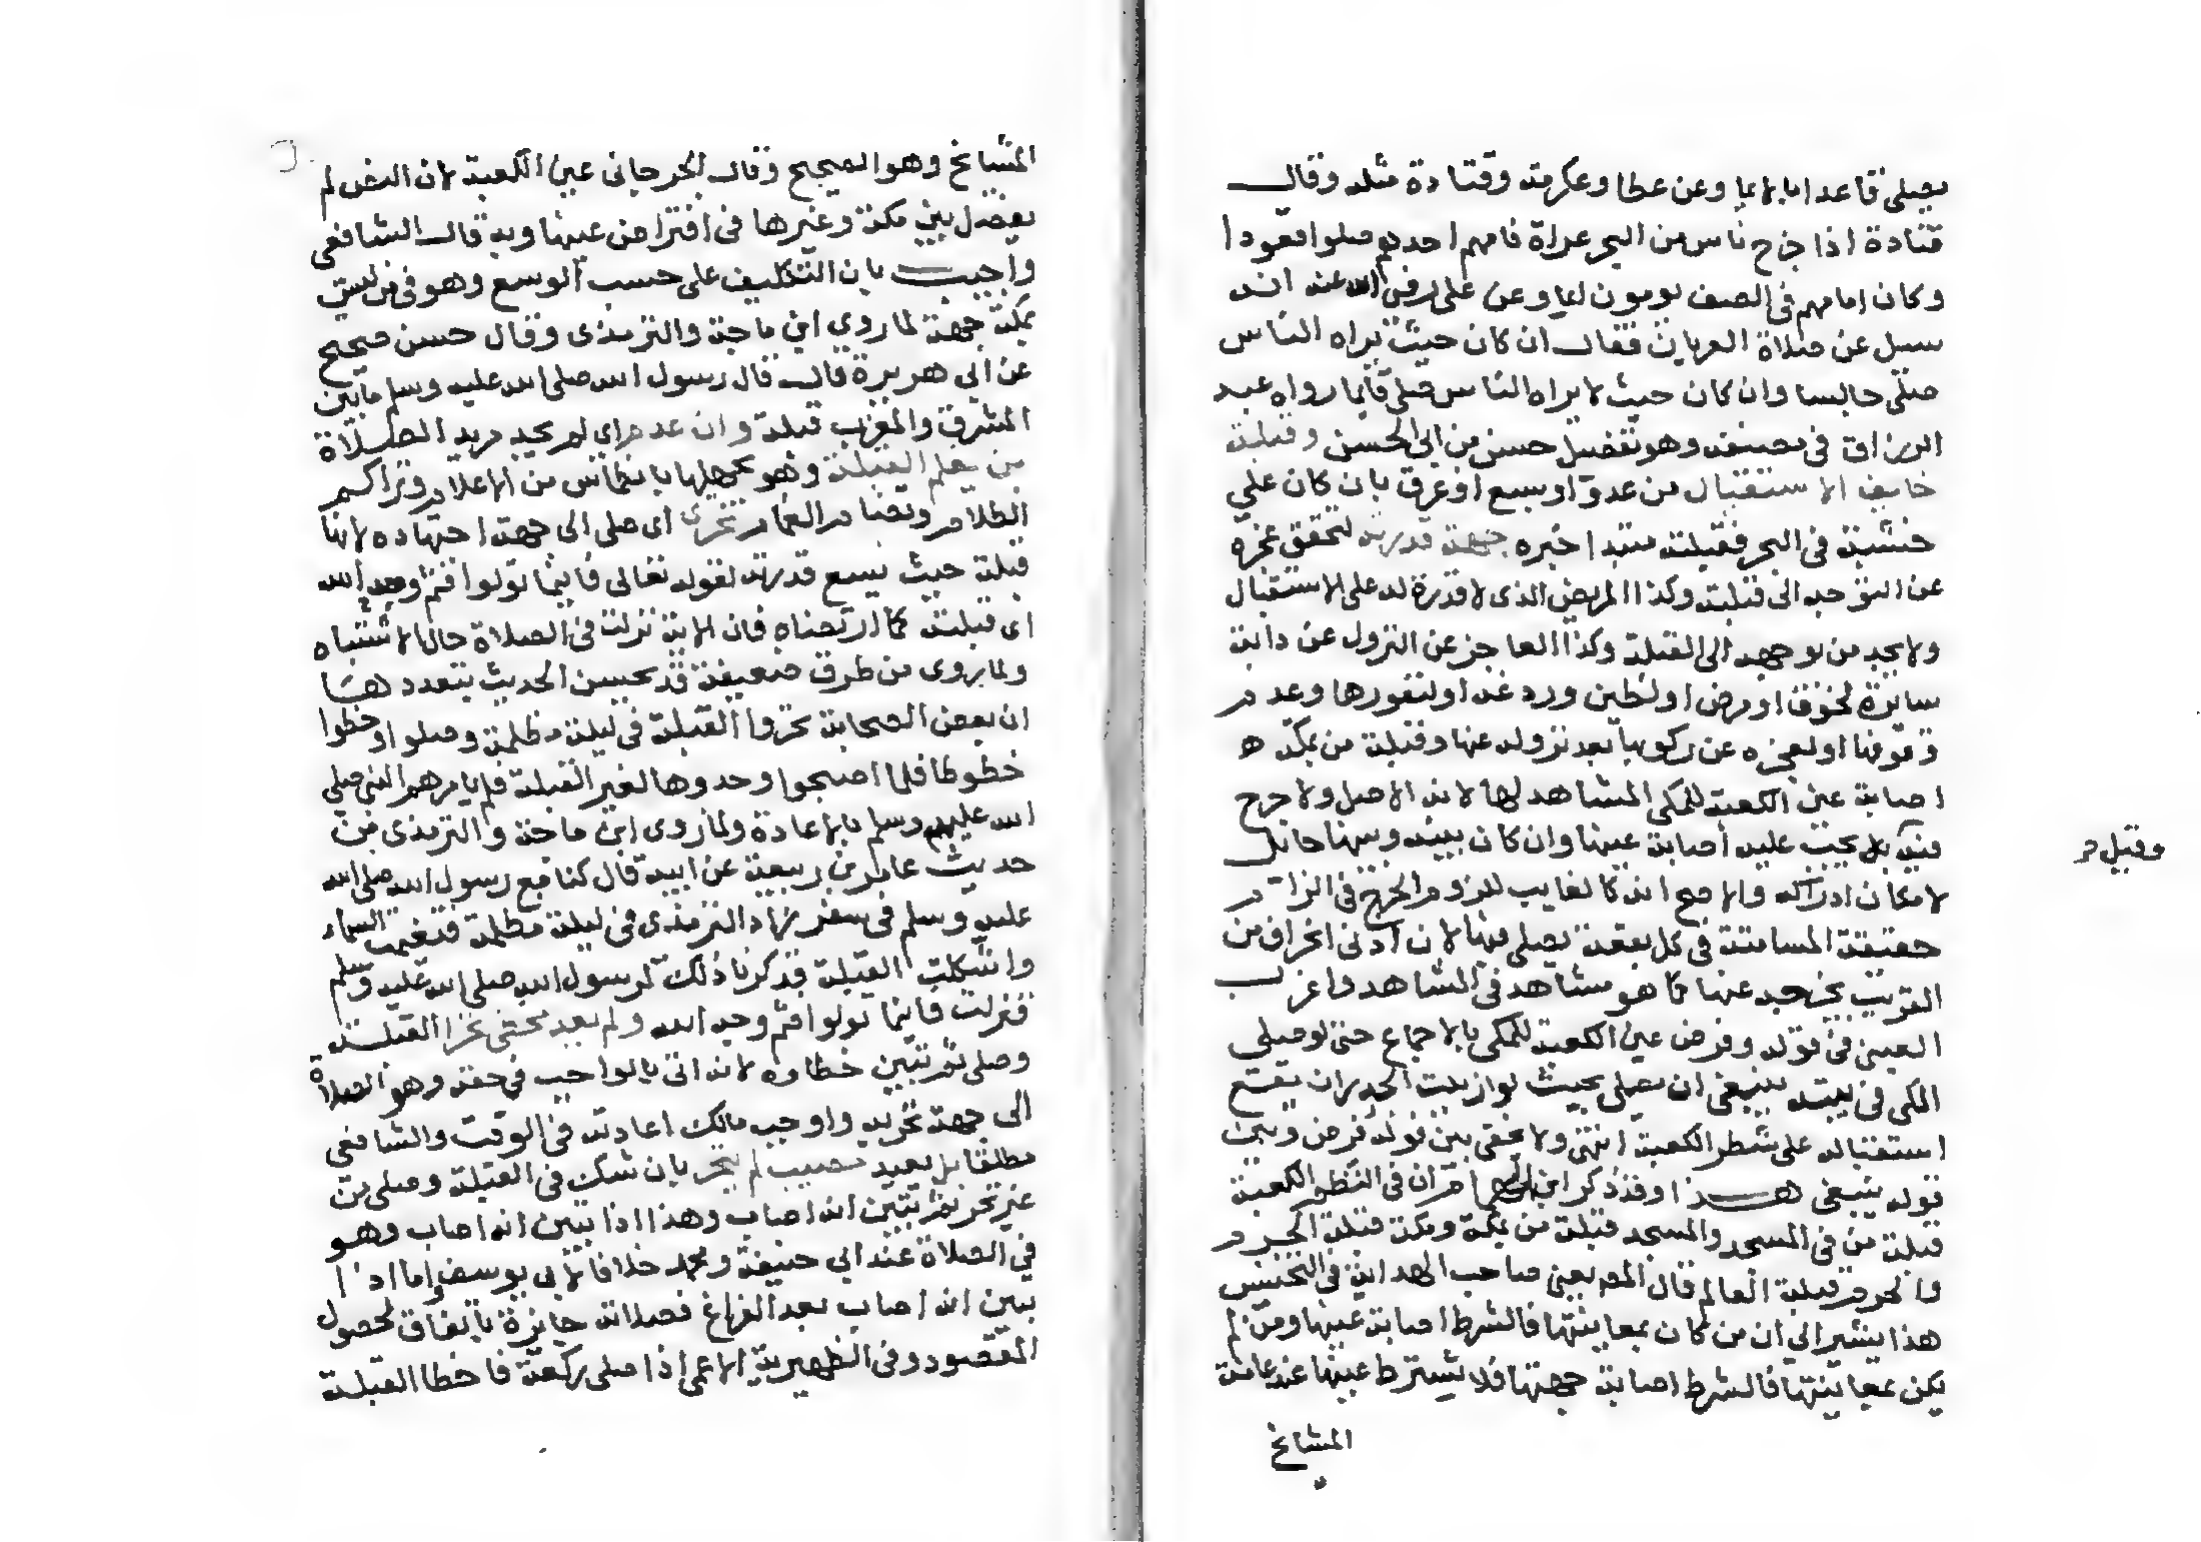 يصلي قاعدا بالايما وعن عطا وعكرمة وقتادة مثله وقال
قتادة اذا خرج ناس من البحر عراة فامهم احدهم صلوا قعودا
وكان امامهم في الصف يومون ايما وعن علي رضي الله عنه انه
سيل عن صلاة العريان فقال ان كان حيث يراه الناس
صلى جالسا وان كان حيث لا يراه الناس صلى قايما رواه عبد
الرزاق في مصنفه وهو تفصيل حسن من ابي الحسن وقبلة
خايف الاستقبال من عدو او سبع او غرق بان كان على
خشبة في البحر فقبلته مبتدا خبره جهة قدرته لتحقق عجزه
عن التوجه الى قبلته وكذا المريض الذي لا قدرة له على الاستقبال
ولا يجد من يوجهه الى القبلة وكذا العاجز عن النزول عن دابة
سايرة لخوف او مرض او لطين وردغه او لنفورها وعدم
وقوفها او لعجزه عن ركوبها بعد نزوله عنها وقبلة من بمكة ه
اصابة عين الكعبة للمكي المشاهد لها لانه الاصل ولا حرج
فيه بل يجب عليه اصابة عينها وان كان بينه وبينها حايل
وقيل م
لامكان ادراكه والاصح انه كالغايب للزوم الحرج في الزام
حقيقة المسامتة في كل بقعة يصلي فيها لان ادنى انحراف من
القريب يخرجه عنها كما هو مشاهد في المشاهد واغرب
العيني في قوله وفرض عين الكعبة للمكي بالاجماع حتى لو صلى
المكي في بيته ينبغي ان يصلي بحيث لو ازيلت الجدران يقع
استقباله على شطر الكعبة انتهى ولا يخفى بين قوله فرض وبين
قوله ينبغي هذا وقد ذكر ابن ان في النظم الكعبة
قبلة من في المسجد والمسجد قبلة من بمكة ومكة قبلة الحرم
والحرم قبلة العالم قال المص يعني صاحب الهداية في التجنيس
هذا يشير الى ان من كان بمعاينتها فالشرط اصابة عينها ومن لم
يكن بمعاينتها فالشرط اصابة جهتها فلا يشترط عينها عند عامة
المشايخ
المشايخ وهو الصحيح وقال الجرجاني عين الكعبة لان النص لم
يفصل بين مكة وغيرها في افتراض عينها وبه قال الشافعي
واجيب بان التكليف على حسب الوسع وهو في من ليس
بمكة جهة لما روي ابن ماجة والترمذي وقال حسن صحيح
عن ابي هريرة قال قال رسول الله صلى الله عليه وسلم ما بين
المشرق والمغرب قبلة وان عدم اي لم يجد مريد الصلاة
من يعلم القبلة وهو يجهلها بانطماس من الاعلام وتراكم
الظلام وتضام الغمام تحرى اي صلى الى جهة اجتهاده لانها
قبلة حيث يسع قدرته لقوله تعالى فاينما تولوا فثم وجه الله
اي قبلته كما ارتضاه فان الاية نزلت في الصلاة حال الاشتباه
ولما يروى من طرق ضعيفة قد يحسن الحديث بتعددها
ان بعض الصحابة تحروا القبلة في ليلة مظلمة وصلوا وخطوا
خطوطا فلما اصبحوا وجدوها لغير القبلة فلم يامرهم النبي صلى
الله عليه وسلم بالاعادة ولما روى ابن ماجة والترمذي من
حديث عامر بن ربيعة عن ابيه قال كنا مع رسول الله صلى الله
عليه وسلم في سفر زاد الترمذي في ليلة مظلمة فتغيمت السماء
واشكلت القبلة فذكرنا ذلك لرسول الله صلى الله عليه وسلم
فنزلت فاينما تولوا فثم وجه الله ولم يعد مخطي تحرا القبلة
وصلى ثم تبين خطاوه لانه اتى بالواجب في حقه وهو الصلاة
الى جهة تحريه واوجب مالك اعادته في الوقت والشافعي
مطلقا بل يعيد مصيب لم يتحر بان شك في القبلة وصلى من
غير تحر ثم تبين انه اصاب وهذا اذا تبين انه اصاب وهو
في الصلاة عند ابي حنيفة ومحمد خلافا لابي يوسف واما اذا
تبين انه اصاب بعد الفراغ فصلاته جايزة باتفاق لحصول
المقصود وفي الظهيرية الاعمى اذا صلى ركعة فاخطا القبلة